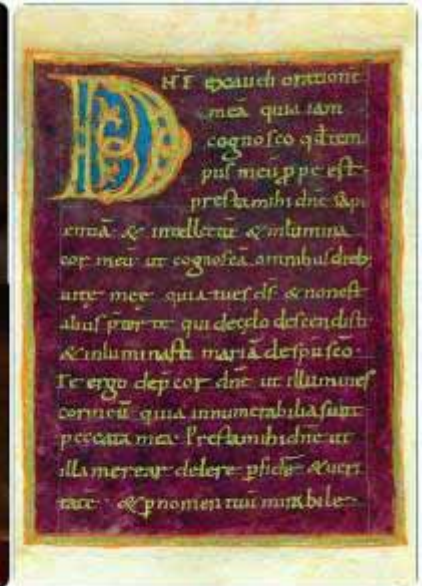 DNE exaudi orationē
meā quia iam
cognosco qđ tem
pus meū ꝓpe est
presta mihi dne sapi
entiā & intellectū & inlumina
cor meū ut cognoscā omnibus dieb;
uitę meę quia tu es ds & non est
alius pter te qui de cęlo descendisti
& inluminasti mariā de spū scō
Te ergo depcor dne ut illumines
cor meū quia innumerabilia sunt
peccata mea Presta mihi dne ut
illa merear delere p fidē & ueri
tatē & p nomen tuū mirabile